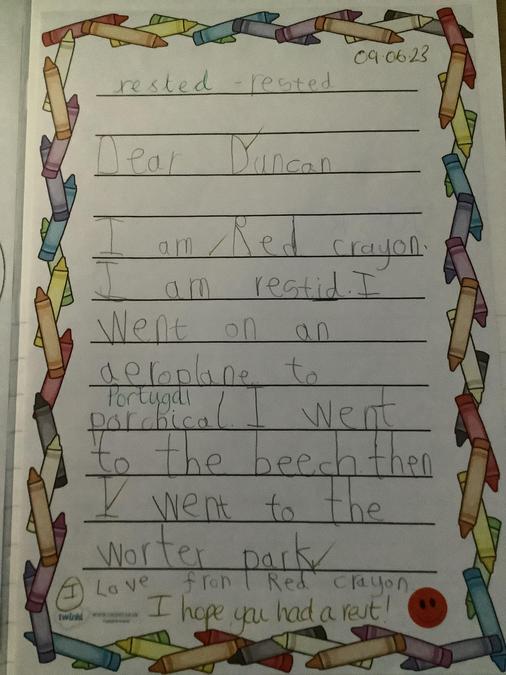 09.06.23
rested - rested
Dear Duncan
I am Red crayon.
I am restid. I
Went on an
aeroplane to
Portugal
porchical. I went
to the beech. then
I went to the
worter park
Love from Red crayon
I
twinkl
I hope you had a rest!